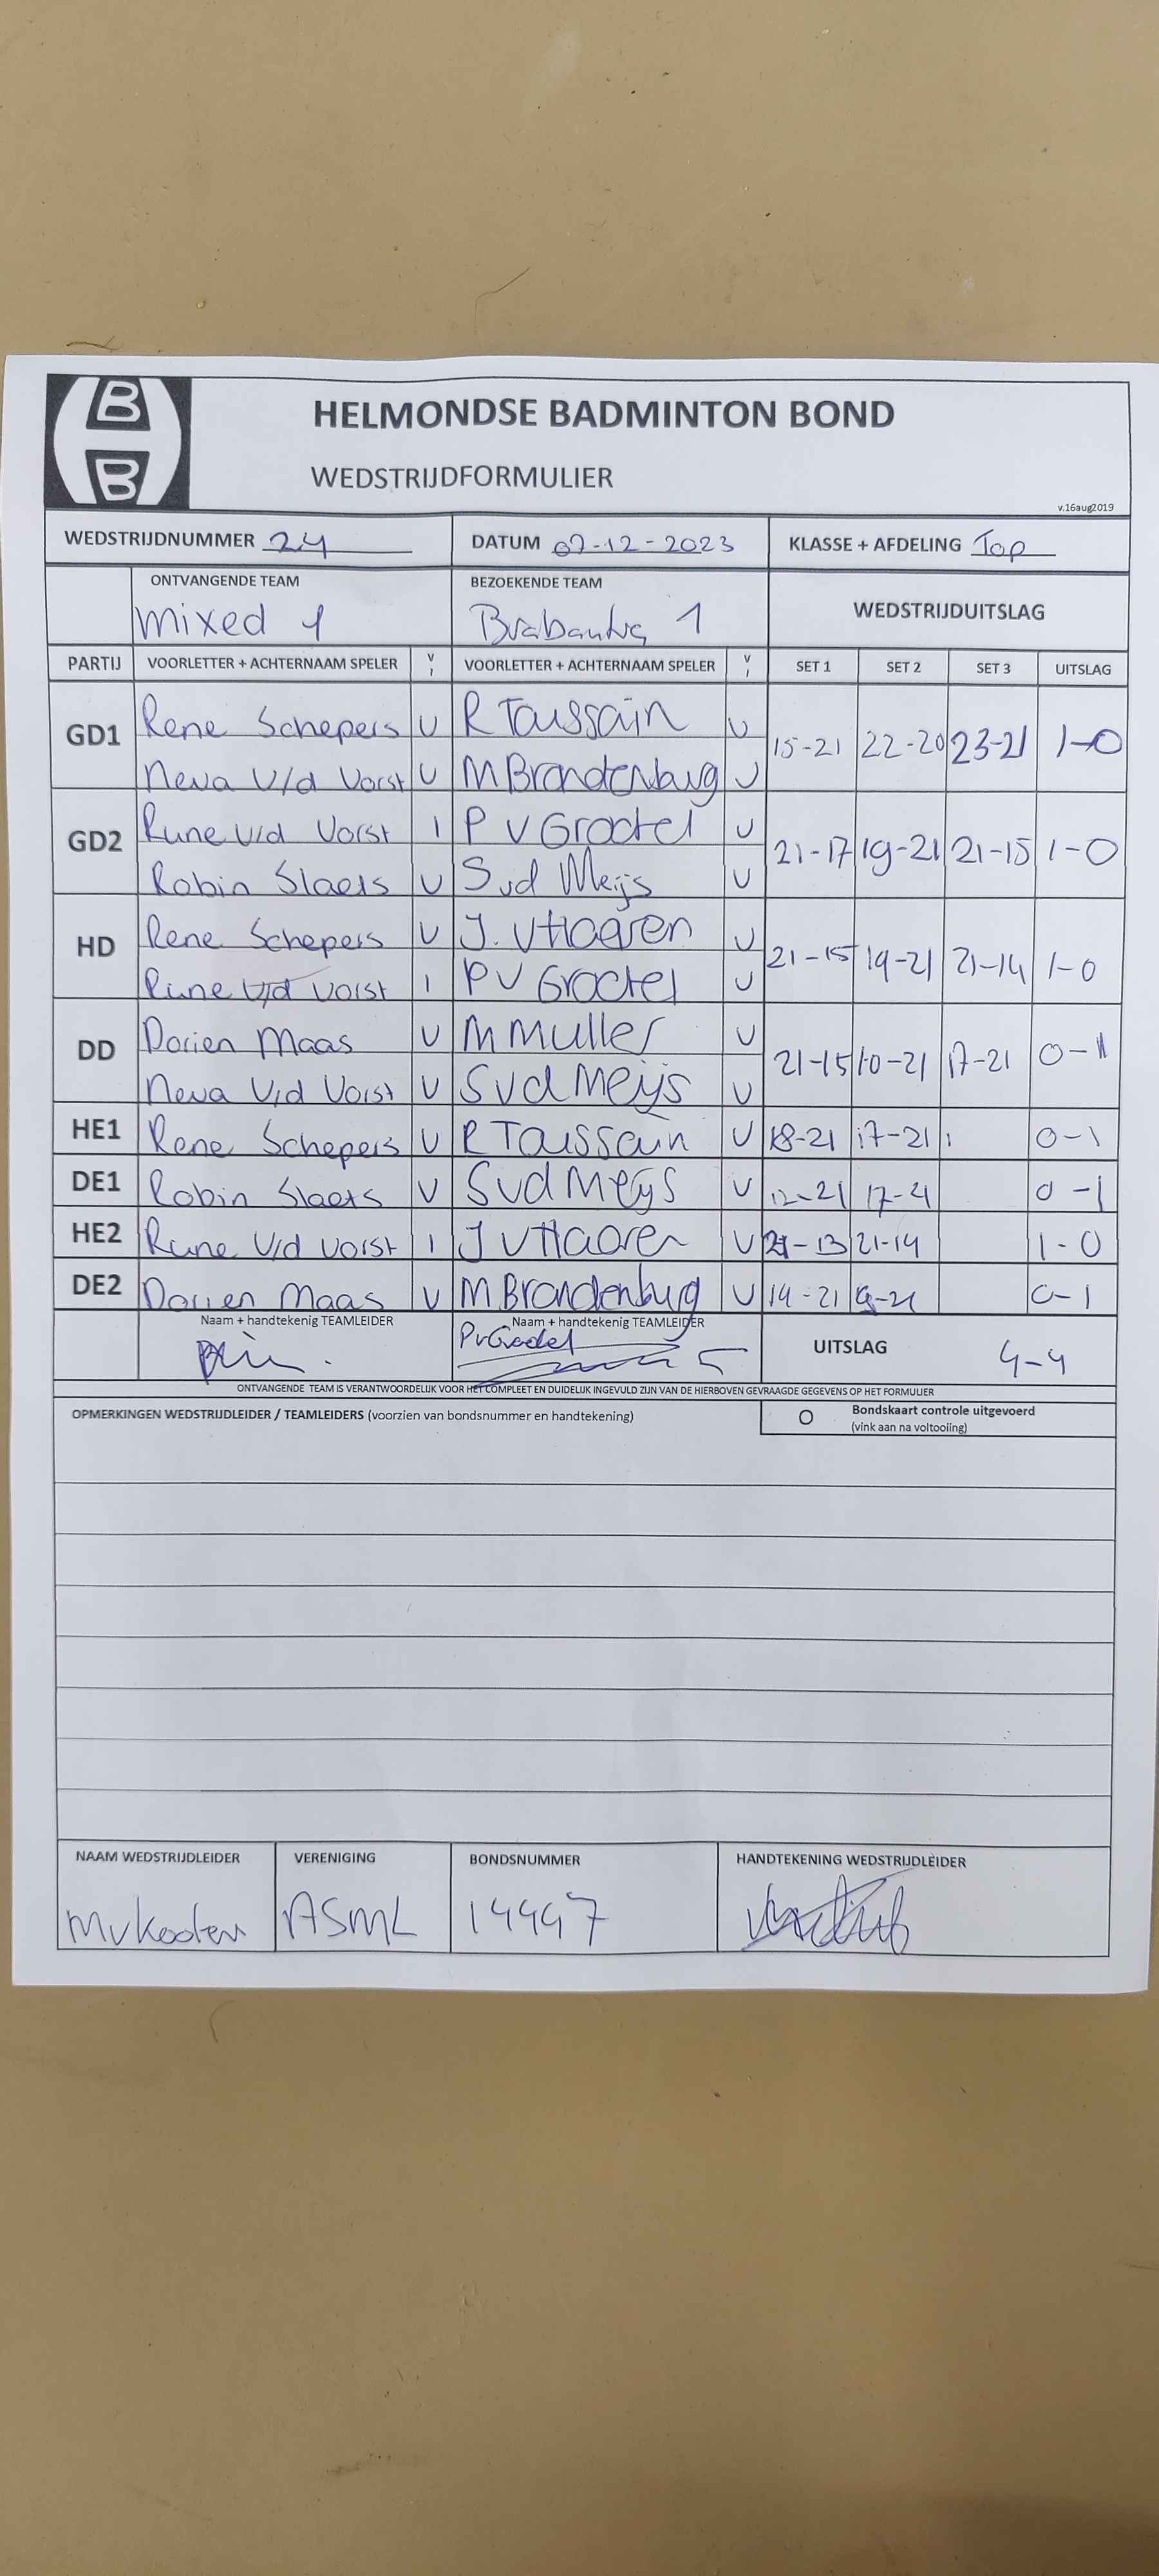 B
B
HELMONDSE BADMINTON BOND
WEDSTRIJDFORMULIER
v.16aug2019
WEDSTRIJDNUMMER 24 DATUM 07-12-2023 KLASSE + AFDELING Top
ONTVANGENDE TEAM BEZOEKENDE TEAM WEDSTRIJDUITSLAG
Mixed 1 Brabantia 1
PARTIJ VOORLETTER + ACHTERNAAM SPELER V I VOORLETTER + ACHTERNAAM SPELER V I SET 1 SET 2 SET 3 UITSLAG
GD1 Rene Schepers V R Toussain V 15-21 22-20 23-21 1-0
Neva V/d Vorst V M Brandenburg V
GD2 Rune V/d Vorst I P V Grootel V 21-17 19-21 21-15 1-0
Robin Slaets V S vd Meijs V
HD Rene Schepers V J. V Haaren V 21-15 19-21 21-14 1-0
Rune V/d Vorst I P V Grootel V
DD Dorien Maas V M Muller V 21-15 10-21 17-21 0-1
Neva V/d Vorst V S vd Meijs V
HE1 Rene Schepers V R Toussain V 18-21 17-21 0-1
DE1 Robin Slaets V S vd Meijs V 12-21 17-21 0-1
HE2 Rune V/d Vorst I J V Haaren V 21-13 21-14 1-0
DE2 Dorien Maas V M Brandenburg V 14-21 9-21 0-1
Naam + handtekenig TEAMLEIDER Naam + handtekenig TEAMLEIDER UITSLAG 4-4
PvGrootel
ONTVANGENDE TEAM IS VERANTWOORDELIJK VOOR HET COMPLEET EN DUIDELIJK INGEVULD ZIJN VAN DE HIERBOVEN GEVRAAGDE GEGEVENS OP HET FORMULIER
OPMERKINGEN WEDSTRIJDLEIDER / TEAMLEIDERS (voorzien van bondsnummer en handtekening) O Bondskaart controle uitgevoerd
(vink aan na voltooiing)
NAAM WEDSTRIJDLEIDER VERENIGING BONDSNUMMER HANDTEKENING WEDSTRIJDLEIDER
MvKooten ASML 14497